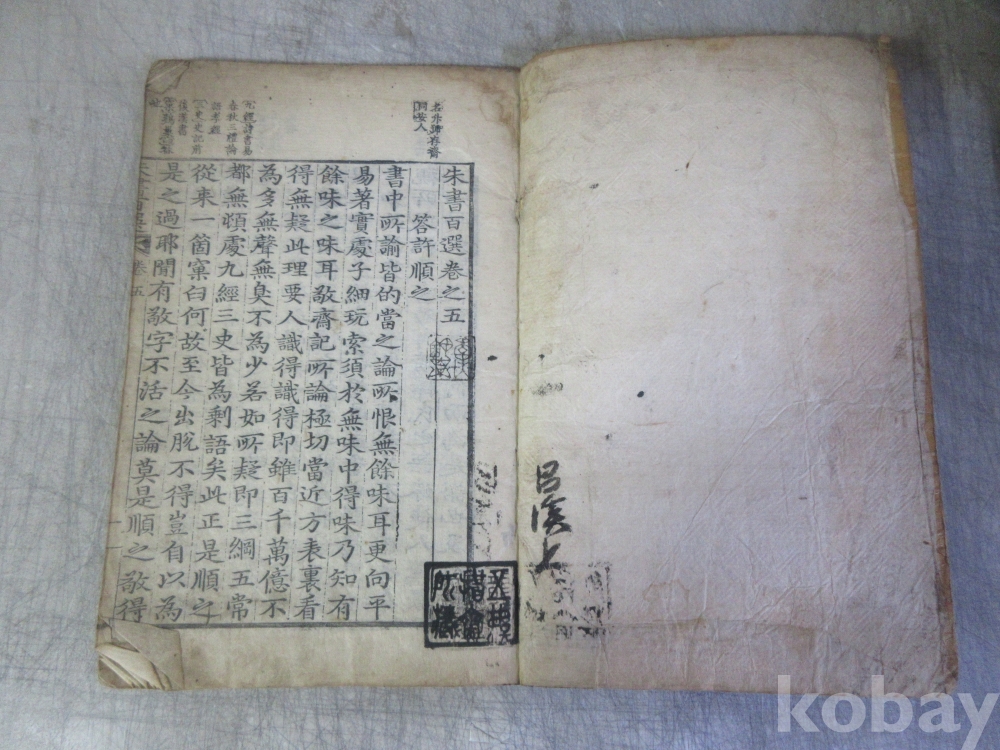 朱書百選卷之五
答許順之
書中所諭皆的當之論所恨無餘味耳更向平
易著實處子細玩索須於無味中得味乃知有
餘味之味耳敬齋記所論極切當近方表裏看
得無疑此理要人識得識得即雖百千萬億不
為多無聲無臭不為少若如所疑即三綱五常
都無頓處九經三史皆為剩語矣此正是順之
從來一箇窠臼何故至今出脫不得豈自以為
是之過耶聞有敬字不活之論莫是順之敬得
卷五
名升號存齋
同安人
九經詩書易
春秋三禮論
語孝經
三史史記前
後漢書
kobay